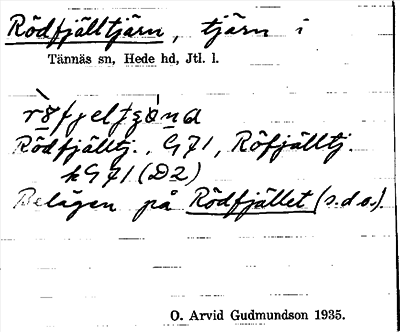 Rödfjälltjärn, tjärn i
Tännäs sn, Hede hd, Jtl. l.
Rödfjälltj., G71, Röfjälltj.
kG71 (D2)
Belägen på Rödfjället (s.d.o.).
O. Arvid Gudmundson 1935.